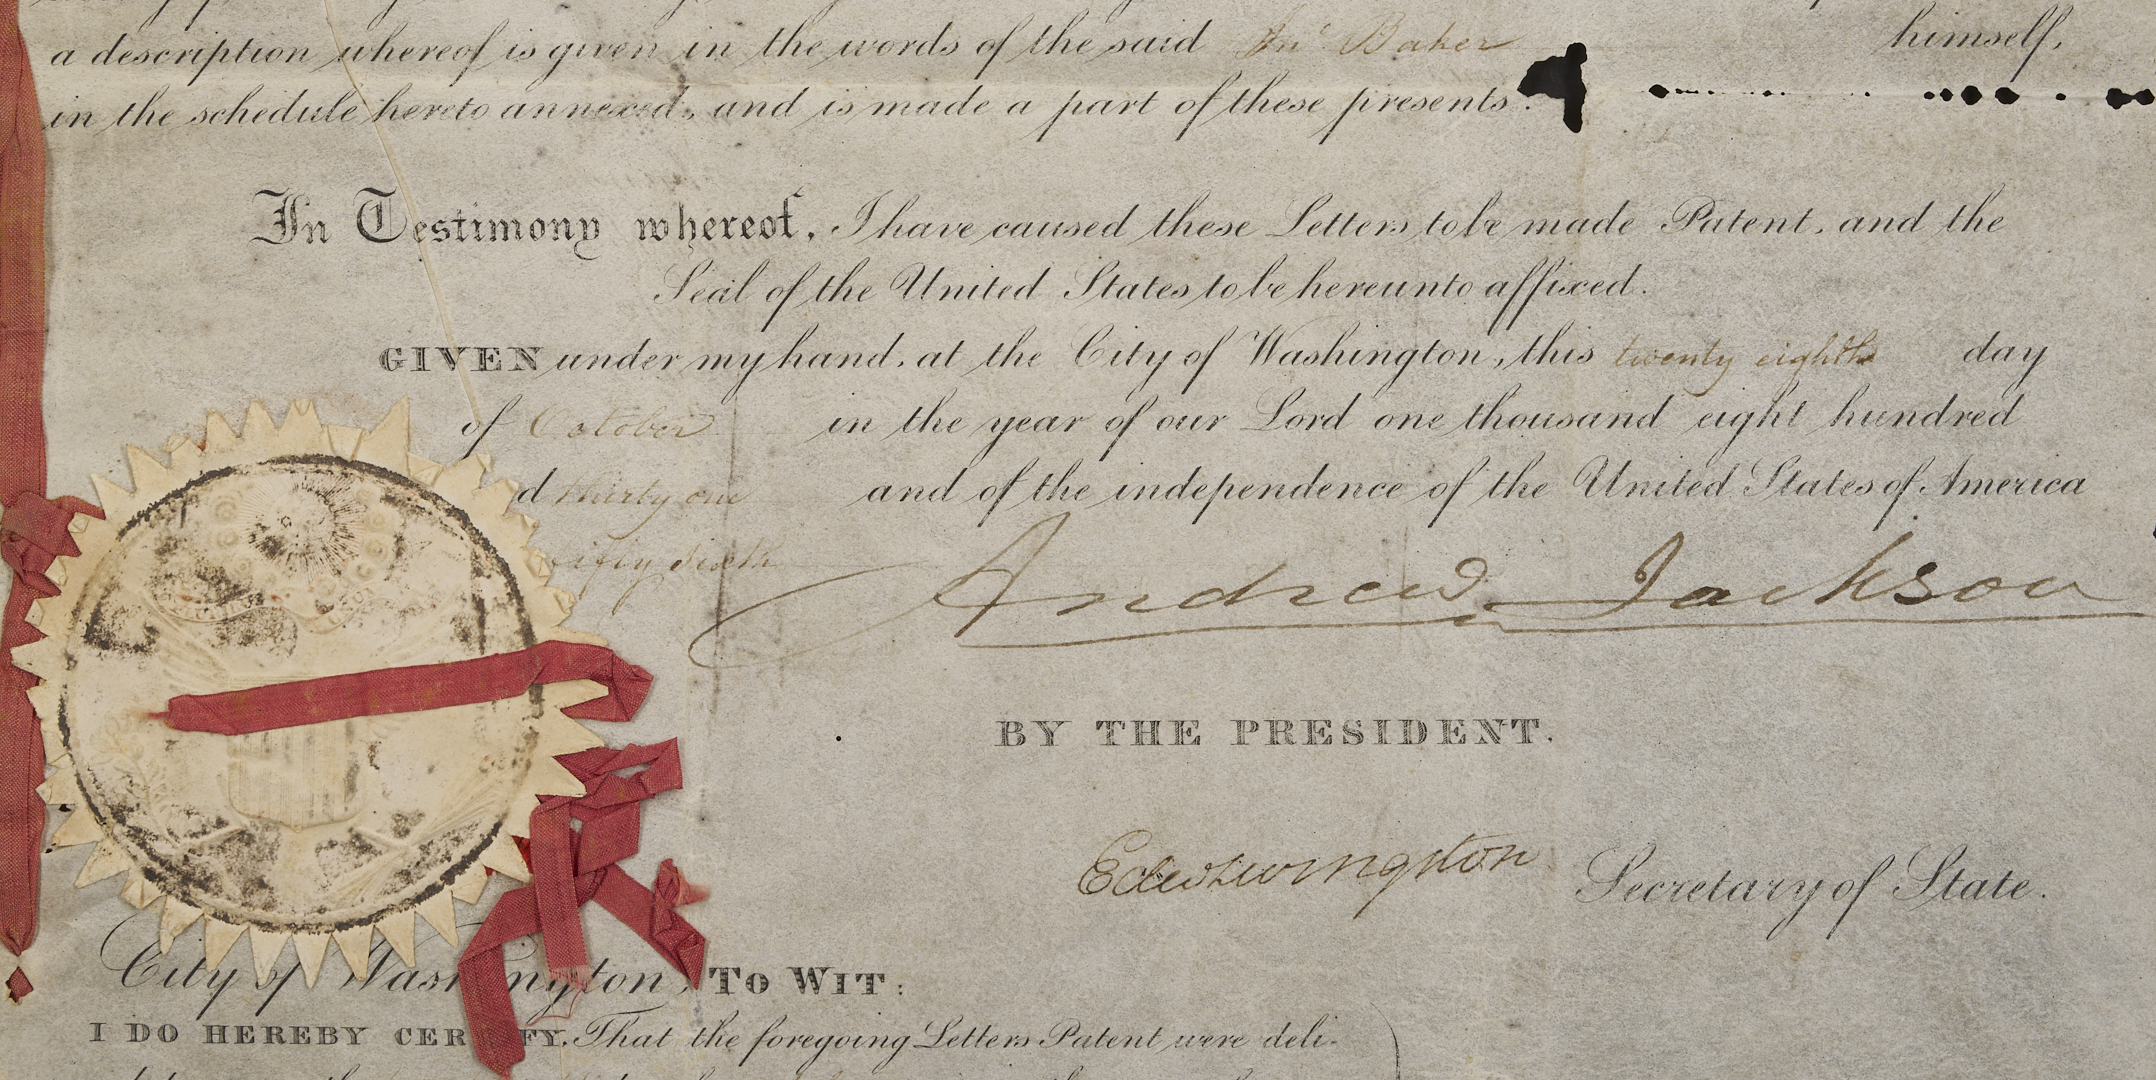 a description whereof is given in the words of the said Jnº Baker himself,
in the schedule hereto annexed, and is made a part of these presents.
In Testimony whereof, I have caused these Letters to be made Patent, and the
Seal of the United States to be hereunto affixed.
GIVEN under my hand, at the City of Washington, this twenty eighth day
of October in the year of our Lord one thousand eight hundred
d thirty one and of the independence of the United States of America
fifty sixth
Andrew Jackson
BY THE PRESIDENT.
Edw Livingston Secretary of State.
City of Washington, TO WIT:
I DO HEREBY CERTIFY, That the foregoing Letters Patent were deli-